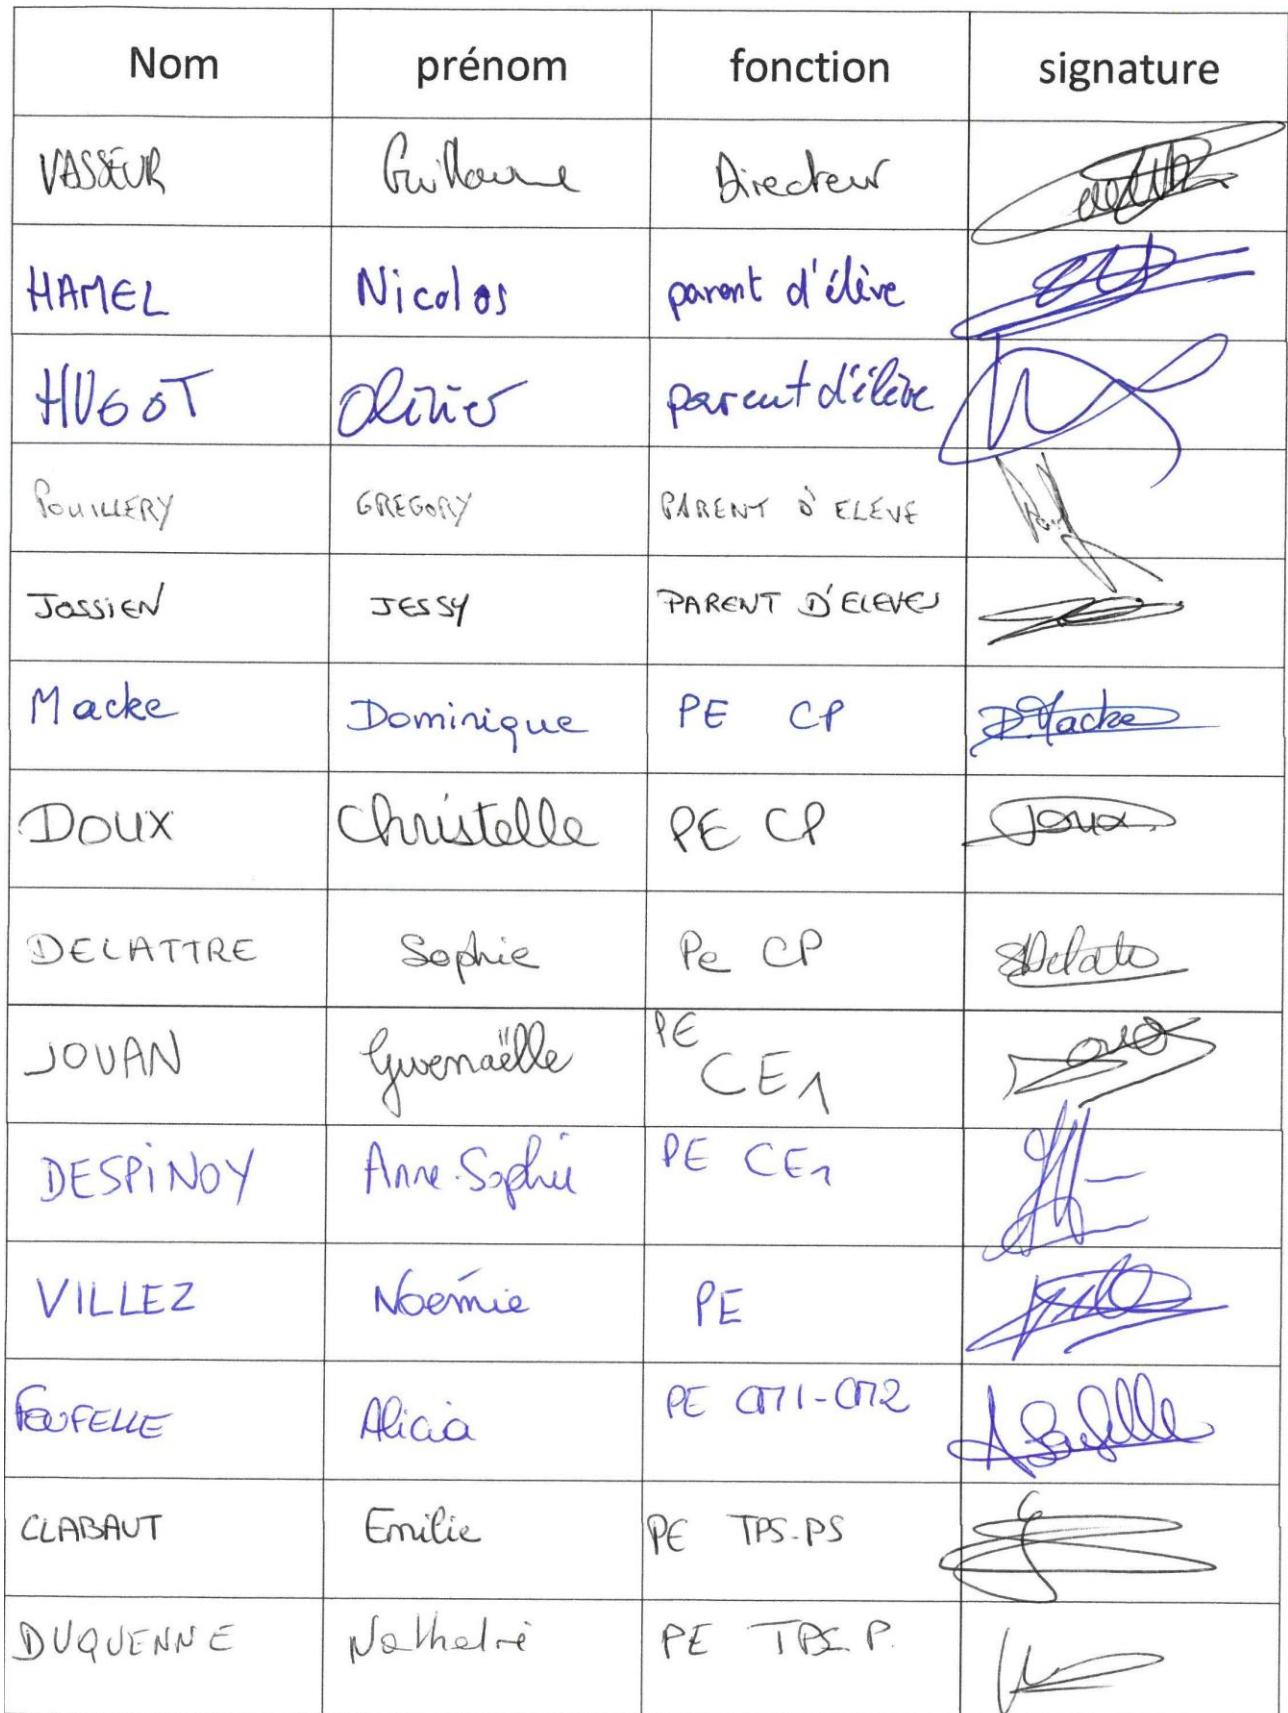 Nom prénom fonction signature
VASSEUR Guillaume Directeur
HAMEL Nicolas parent d'élève
HUGOT Olivier parent d'élève
POUILLERY GREGORY PARENT D'ELEVE
JOSSIEN JESSY PARENT D'ELEVES
Macke Dominique PE CP D.Macke
DOUX Christelle PE CP Doux
DELATTRE Sophie Pe CP
JOUAN Gwenaëlle PE CE1
DESPINOY Anne-Sophie PE CE1
VILLEZ Noémie PE
FOUFELLE Alicia PE CM1-CM2
CLABAUT Emilie PE TPS-PS
DUQUENNE Nathalie PE TPS.P.